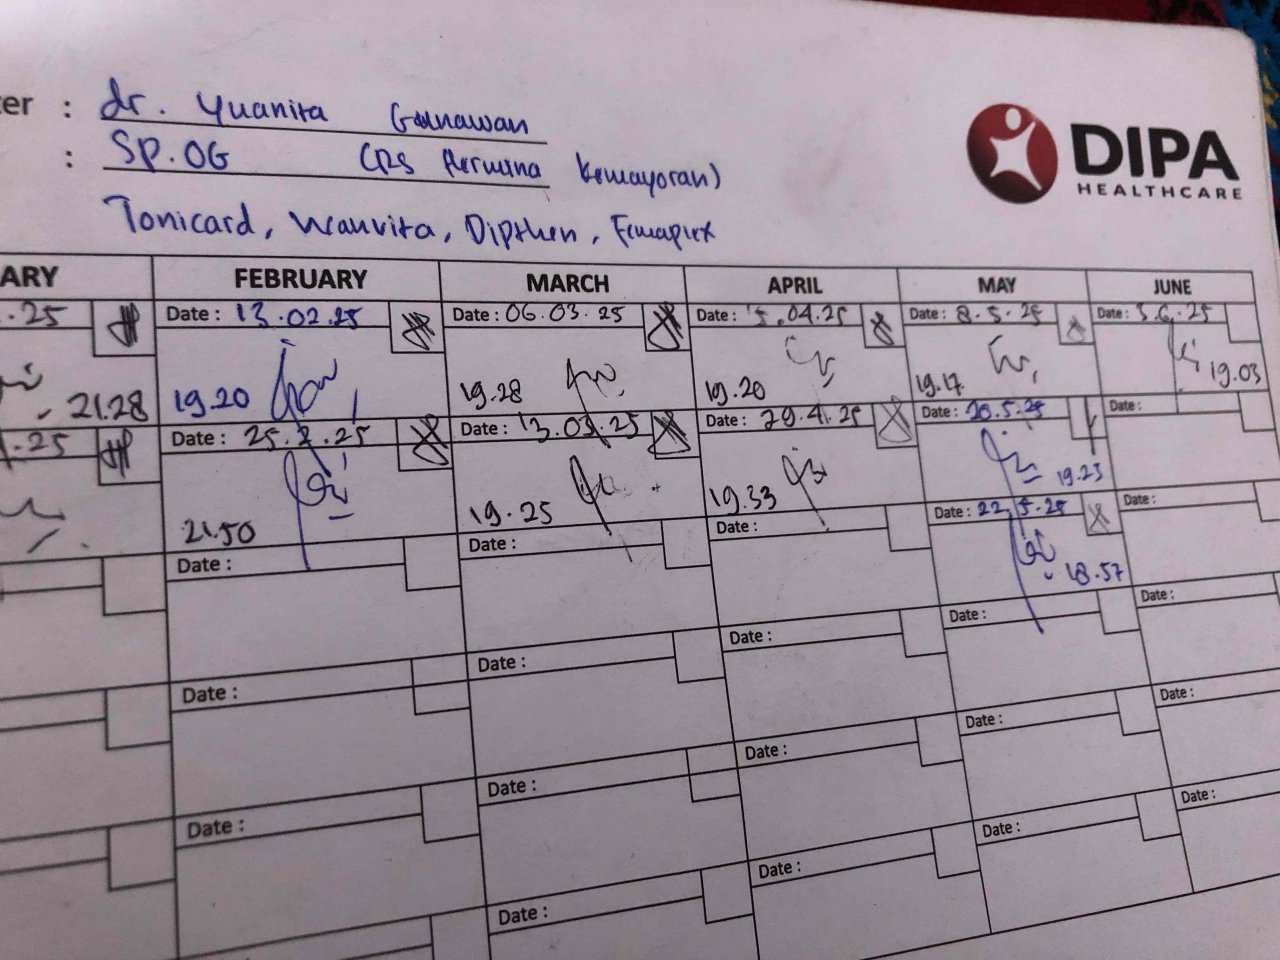 ter : dr. Yuanita Gunawan
: SP.OG (RS Hermina Kemayoran)
Tonicard, Wanvita, Dipthen, Femaplex
DIPA
HEALTHCARE
ARY FEBRUARY MARCH APRIL MAY JUNE
.25 Date : 13.02.25 Date : 06.03.25 Date : 5.04.25 Date : 8.5.25 Date : 3.6.25
21.28 19.20 19.28 19.20 19.17 19.03
.25 Date : 25.2.25 Date : 13.03.25 Date : 29.4.25 Date : 20.5.25 Date :
21.50 19.25 19.33 19.23
Date : Date : Date : Date : 22.5.25 Date :
18.57
Date : Date : Date : Date : Date :
Date : Date : Date : Date : Date :
Date : Date : Date : Date :